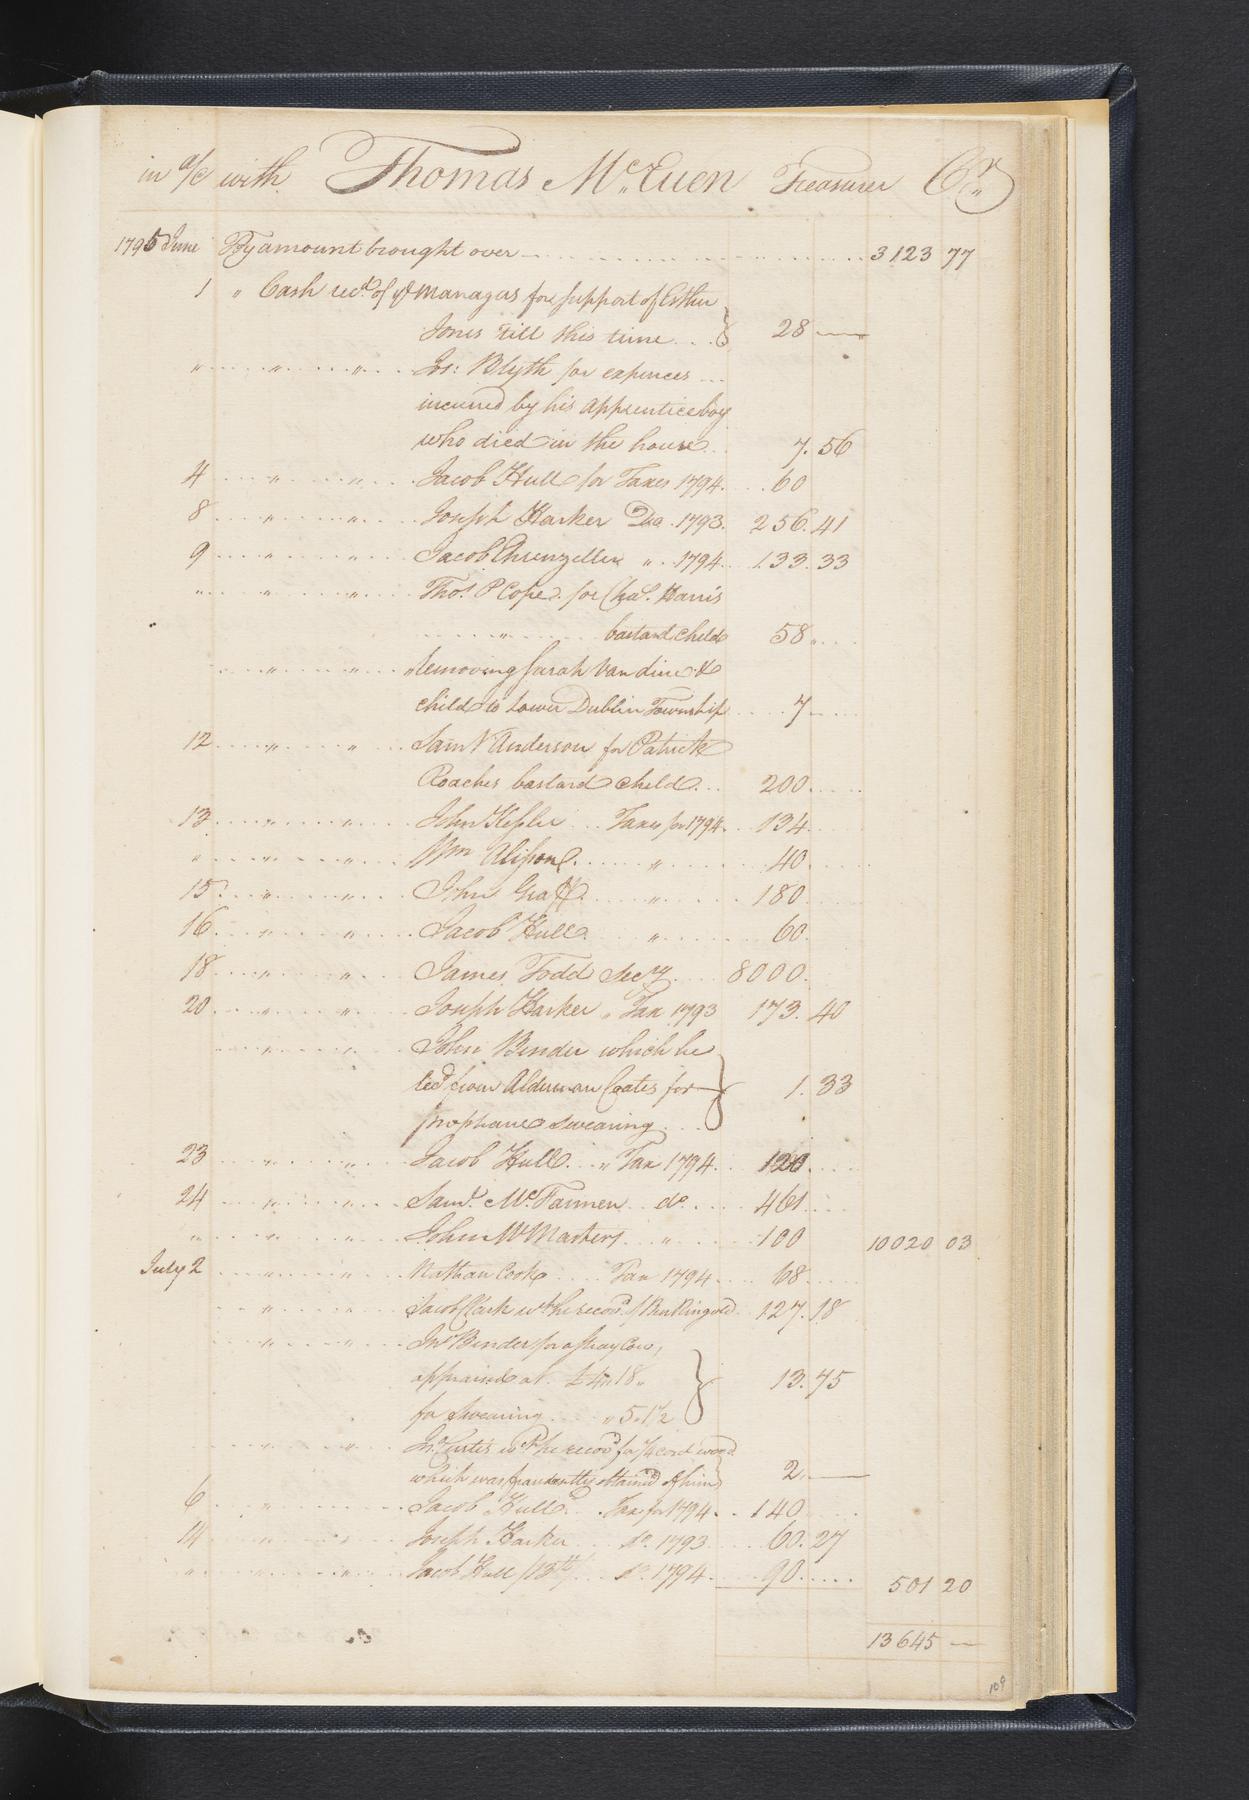 in a/c with Thomas McEuen Treasurer Cr
1795 June By amount brought over 3123 77
1 " Cash recd. of ye Managers for support of Esther
Jones till this time 28 —
" " " Jos: Blyth for expences
incurred by his apprentice boy
who died in the house 7. 56
4 " " Jacob Hull for Taxes 1794. 60
8 " " Joseph Harker Do. 1793. 256. 41
9 " " Jacob Ehrenzeller " 1794. 133. 33
" " " Thos. P Cope for Chas. Harris
" bastard child 58
" " " removing Sarah Vandine &
child to Lower Dublin Township 7
12 " " Saml Anderson for Patrick
Roaches bastard child 200
13 " " John Kessler Taxes for 1794 134
" " " Wm Alison " 40
15 " " John Graff " 180
16 " " Jacob Hull " 60
18 " " James Todd Secy 8000
20 " " Joseph Harker " Tax 1793 173. 40
" " John Binder which he
recd from Alderman Coates for
prophane swearing 1. 33
23 " " Jacob Hull " Tax 1794 120
24 " " Saml. McFannen do. 461
" " " John W Masters " 100 10020 03
July 2 " " Nathan Cook Tax 1794 68
" " Jacob Clark wh he recovd of 127. 18
" " Jno Binder for a stray Cow,
appraised at £4 " 18 "
for Swearing " 5. 1½ 13. 75
" " Jno. Curtis wh he recovd for ¼ cord wood
which was fraudently obtained of him 2. —
6 " Jacob Hull Tax for 1794 140
14 " " Joseph Harker Do. 1793 60. 27
" " " Jacob Hull /13th/ Do. 1794 90 501 20
13645 —
109